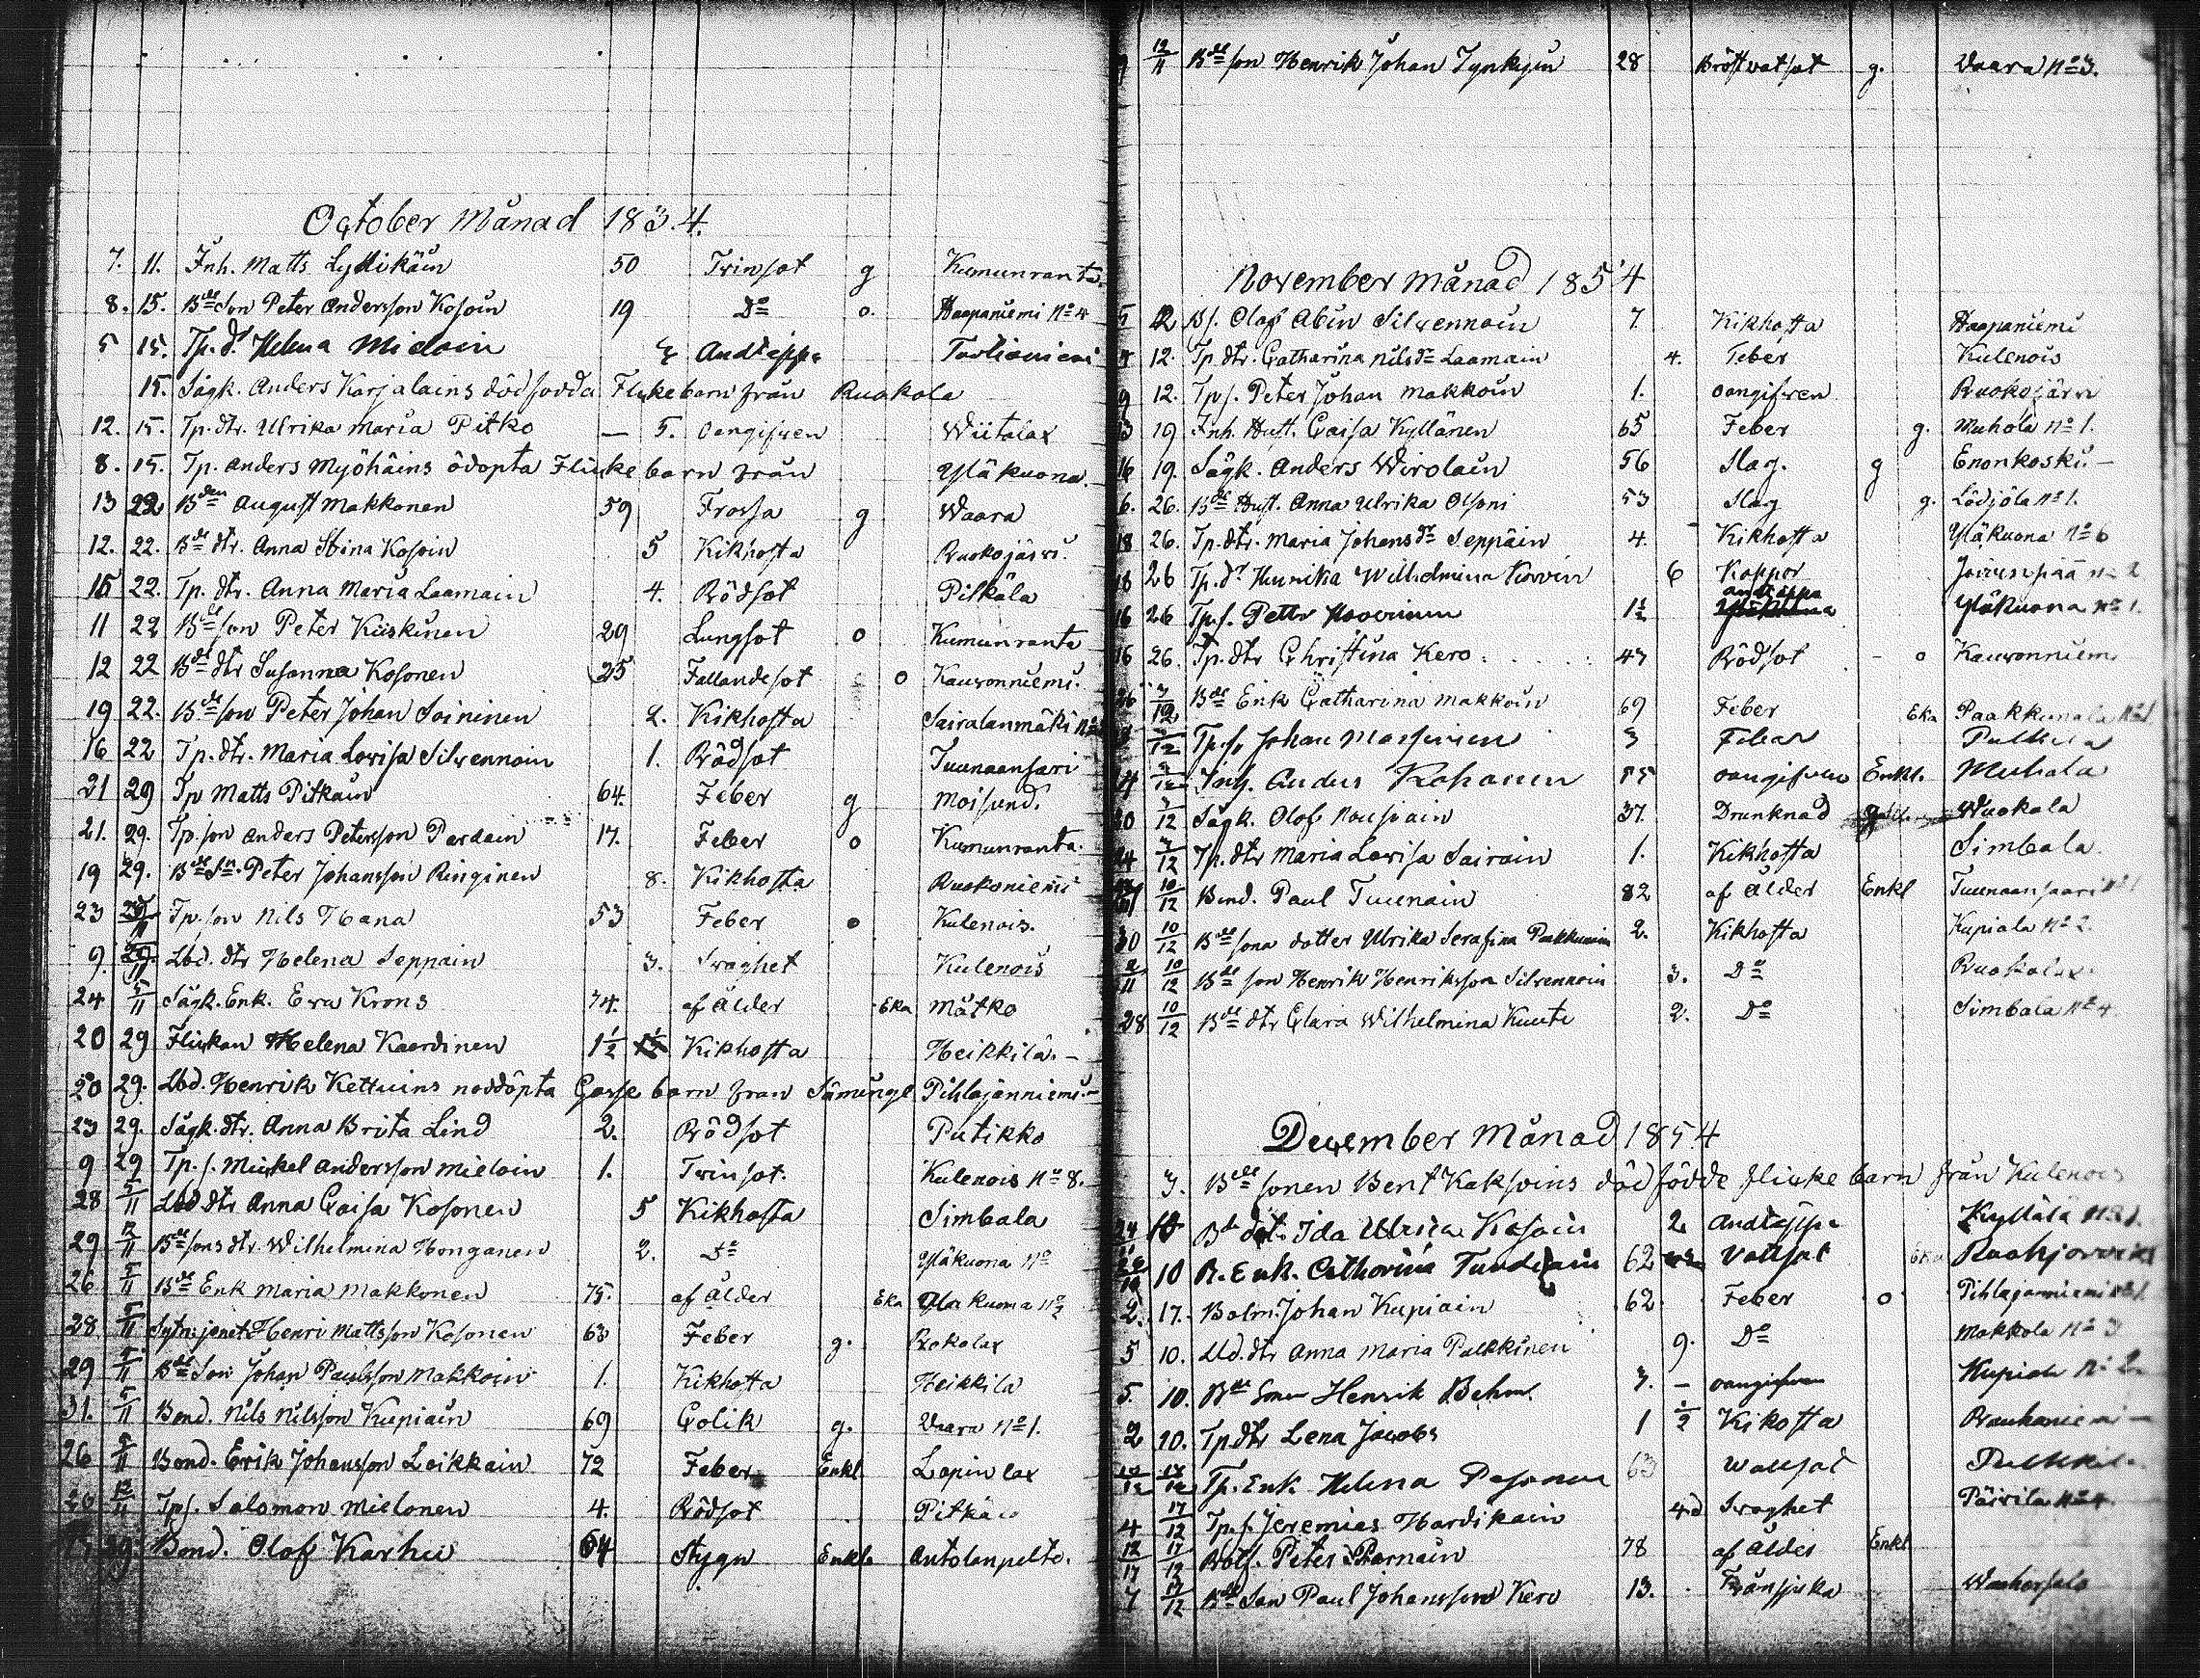 October Månad 183.4.
7. 11. Inh. Matts Lyttikäin 50 Tvinsot g Kumunranta
8. 15. Bde Son Peter Andersson Kosoin 19 Do o. Haapaniemi No 4
5 15. Tp. dr. Helena Mieloin Andtäppa
15. Sågk. Anders Karjalains dödfödda Flickebarn från Ruokola
12. 15. Tp. dtr. Ulrika Maria Pitko — 5. Oangifven Wiitalax
8. 15. Tp. Anders Myöhäins odöpta Flickebarn från Yläkuona.
13 22 Bden August Makkonen 59 Frossa g Waara
12. 22. Bde dtr. Anna Stina Kosoin 5 Kikhosta Ruokojärvi.
15 22. Tp. dtr. Anna Maria Laamain 4. Rödsot Pitkälä
11 22 Bde son Peter Kiiskinen 29 Lungsot o Kumunranta
12 22 Bde dtr Susanna Kosonen 25 Fallandesot o Kauvonniemi.
19 22. Bde son Peter Johan Soininen 2. Kikhosta Sairalanmäki No
16 22 Tp. dtr. Maria Lovisa Silvennoin 1. Rödsot Tuunaansari
21 29 Tp Matts Pitkäin 64. Feber g Moisund.
21. 29. Tp. son Anders Petersson Pardain 17. Feber o Kumunranta.
19 29. Bde Sn. Peter Johansson Ringinen 8. Kikhosta Ruokoniemi
23 Tp. son Nils Hana 53 Feber o Kulenois.
9. Lbd. dtr Helena Seppain 3. Svaghet Kulenois
24 5/11 Sågk. Enk. Eva Krons 74. af Ålder Eka Mätko
20 29 Flickan Helena Kaardinen 1½ Kikhosta Heikkilä. —
20 29. Lbd. Henrik Kettuins noddöpta Gosse barn från Säminge Pihlajanniemi. —
23 29. Sågk. dtr. Anna Brita Lind 2. Rödsot Putikko
9 29 Tp. s. Mickel Andersson Mieloin 1. Tvinsot. Kulenois No 8.
28 5/11 Lbd dtr Anna Caisa Kosonen 5 Kikhosta Simbala
29 Bde sons dtr. Wilhelmina Honganen 2. Do Yläkuona No
26 5/11 Bde Enk Maria Makkonen 75. af Ålder Eka Yläkuona No
28 5/11 Henri Mattsson Kosonen 63 Feber g. Rokolax
29 5/11 Bde Son Johan Paulsson Makkoin 1. Kikhosta Heikkilä
31. 5/11 Bond. Nils Nilsson Kupiain 69 Colik g. Vaara No 1.
26 Bond. Erik Johansson Loikkain 72 Feber Enkl Lapinlax
12/11 Tp s. Salomon Mielonen 4. Rödsot
Bond. Olof Karhu 64 Stygn Enkl. Autolanpelto.
12/11 Bde son Henrik Johan Tynkyin 28 Bröstvatsot g. Vaara No 3.
November Månad 1854
5 12 Bs. Olof Abin Silvennoin 7. Kikhosta Haapaniemi
12. Tp. dtr. Catharina Nilsdr Laamain 4. Feber Kulenois
9 12. Tp s. Peter Johan Makkoin 1. Oangifven Ruokojärvi
13 19 Inh. Hust. Caisa Kyllänen 65 Feber g. Muhola No 1.
16 19. Sågk. Anders Wirolain 56 Slag. g Enonkoski —
6. 26. Bde Hust. Anna Ulrika Olsoni 53 Slag g. Lödjöla No 1.
18 26. Tp. dtr. Maria Johansdr Seppäin 4. Kikhosta Yläkuona No 6
18 26 Tp. dr Henrika Wilhelmina Korvin 6 Koppor
16 26 Tp. s. Petter 1½ andtäppa Yläkuona No 1.
16 26. Tp. dtr Christina Kero 43 Rödsot o Kauvonniemi
3/12 Bde Enk Catharina Makkoin 69 Feber Eka Paakkunala No 1
3/12 Tp. s. Johan 3 Feber
Inh. Anders Kohonen 55 oangifven Enkl. Muhola
30 3/12 Sågk. Olof Nousiain 37. Drunknad Wuokala
24 3/12 Tp. dtr Maria Lovisa Sairain 1. Kikhosta Simbala.
10/12 Bond. Paul Tuunain 82 af Ålder Enkl Tuunaansaari No 1
30 10/12 Bde sons dotter Ulrika Serafina Paakkunain 2. Kikhosta Kupiala No 2.
2/11 10/12 Bde son Henrik Henriksson Silvennoin 3. Do Ruokolax
28 10/12 Bde dtr Clara Wilhelmina Kuuti 2. Do Simbala No 4
December Månad 1854
3. Bde sonen Bent Kaksoins dödfödde flicke barn från Kulenois
24 10 Bde dotr. Ida Ulrica Kosoin 2 Andtäppa Kyllälä No 1.
10 B. Enk. Catharina 62 Vattsot Eka
2. 17. Bolm. Johan Kupiain 62. Feber o Pihlajanniemi No 1
5 10. Lbd. dtr Anna Maria Pulkkinen 9. Do Makkola No 3
5. 10. Bde Son Henrik Behm 3. — oangifven Kupiala No 2
2 10. Tp dtr Lena Jacobs 1 ½ Kikosta
Tp. Enk Helena Pesonen 63 Wattsot
4 17/12 Tp. s. Jeremias Hardikain 4 d Svaghet Päivilä No 4
12/17 17/12 Rotf. Peter Parnain 78 af Ålder Enkl
7 17/12 Bde Son Paul Johansson Kero 13. Fransjuka